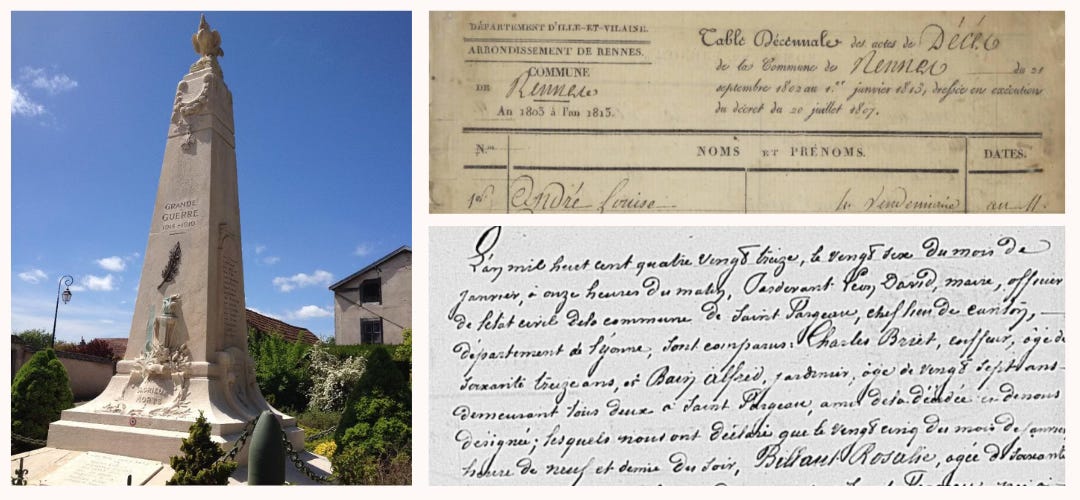 GRANDE
GUERRE
DÉPARTEMENT D'ILLE-ET-VILAINE.
ARRONDISSEMENT DE RENNES.
COMMUNE
DE Rennes
An 1803 à l'an 1813.
Table Décennale des actes de Décès
de la Commune de Rennes du 21
septembre 1802 au 1.er janvier 1813, dressée en exécution
du décret du 20 juillet 1807.
N.os NOMS ET PRÉNOMS. DATES.
1er André Louise Vendemiaire an 11.
L'an mil huit cent quatre vingt treize, le vingt six du mois de
Janvier, à onze heures du matin, Pardevant Léon David, maire, officier
de l'état civil de la commune de Saint Fargeau, chef lieu de canton,
département de l'yonne, sont comparus: Charles Briet, coiffeur, âgé de
soixante treize ans, et Bain Alfred, jardinier, âgé de vingt sept ans
demeurant tous deux à Saint Fargeau, amis de la décédée ci denous
désignée; lesquels nous ont déclaré que le vingt cinq du mois de janvier
heure de neuf et demie du soir, Billaut Rosalie, agée de soixante